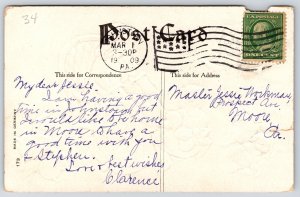 34
Post Card
MAR 1
3-30P
1909
PA.
This side for Correspondence
This side for Address
My dear Jessie,
I am having a good
time in Johnstown but
I would like to be home
in Moore & have a
good time with you
& Stephen.
Love & best wishes
Clarence
Master Jessie Workman,
Prospect Ave.
Moore
Pa.
173